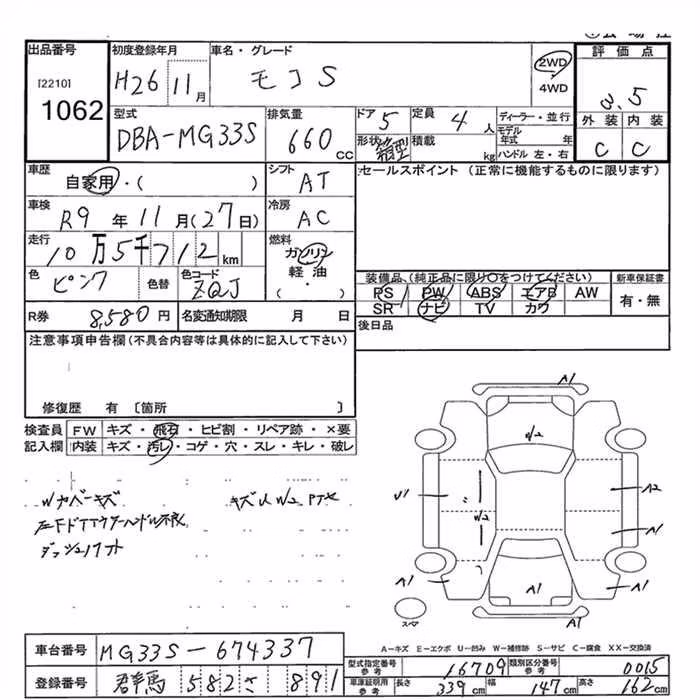 出品番号 初度登録年月 車名・グレード 評価点
[2210] H26 11月 モコS 2WD 4WD 3.5
1062 外装 内装
型式 排気量 ドア 5 定員 4人 ディーラー・並行
DBA-MG33S 660cc 形状 箱型 積載 kg モデル年式 年 ハンドル 左・右 C C
車歴 自家用・( ) シフト AT セールスポイント (正常に機能するものに限ります)
車検 R9年11月(27日) 冷房 AC
走行 10万5千712km 燃料 ガソリン
軽油
・( )
色 ピンク 色替 色コード ZQJ
装備品(純正品に限り○をつけてください) 新車保証書
PS PW ABS エアB AW 有・無
SR ナビ TV カワ
R券 8,580円 名変通知期限 月 日 後日品
注意事項申告欄(不具合内容等は具体的に記入して下さい)
修復歴 有 〔箇所 〕
検査員 FW キズ・飛石・ヒビ割・リペア跡・×要
記入欄 内装 キズ・汚レ・コゲ・穴・スレ・キレ・破レ
A1
W2
Wカバーキズ キズ U1 A2
W2
A1
ダッシュ
A1 A1 A1
スペア A1
A-キズ E-エクボ U-凹み W-補修跡 S-サビ C-腐食 XX-交換済
車台番号 MG33S-674337
型式指定番号 参考 16709 類別区分番号 参考 0015
登録番号 群馬 582 さ 891
車庫証明用 参考 長さ 339cm 幅 147cm 高さ 162cm